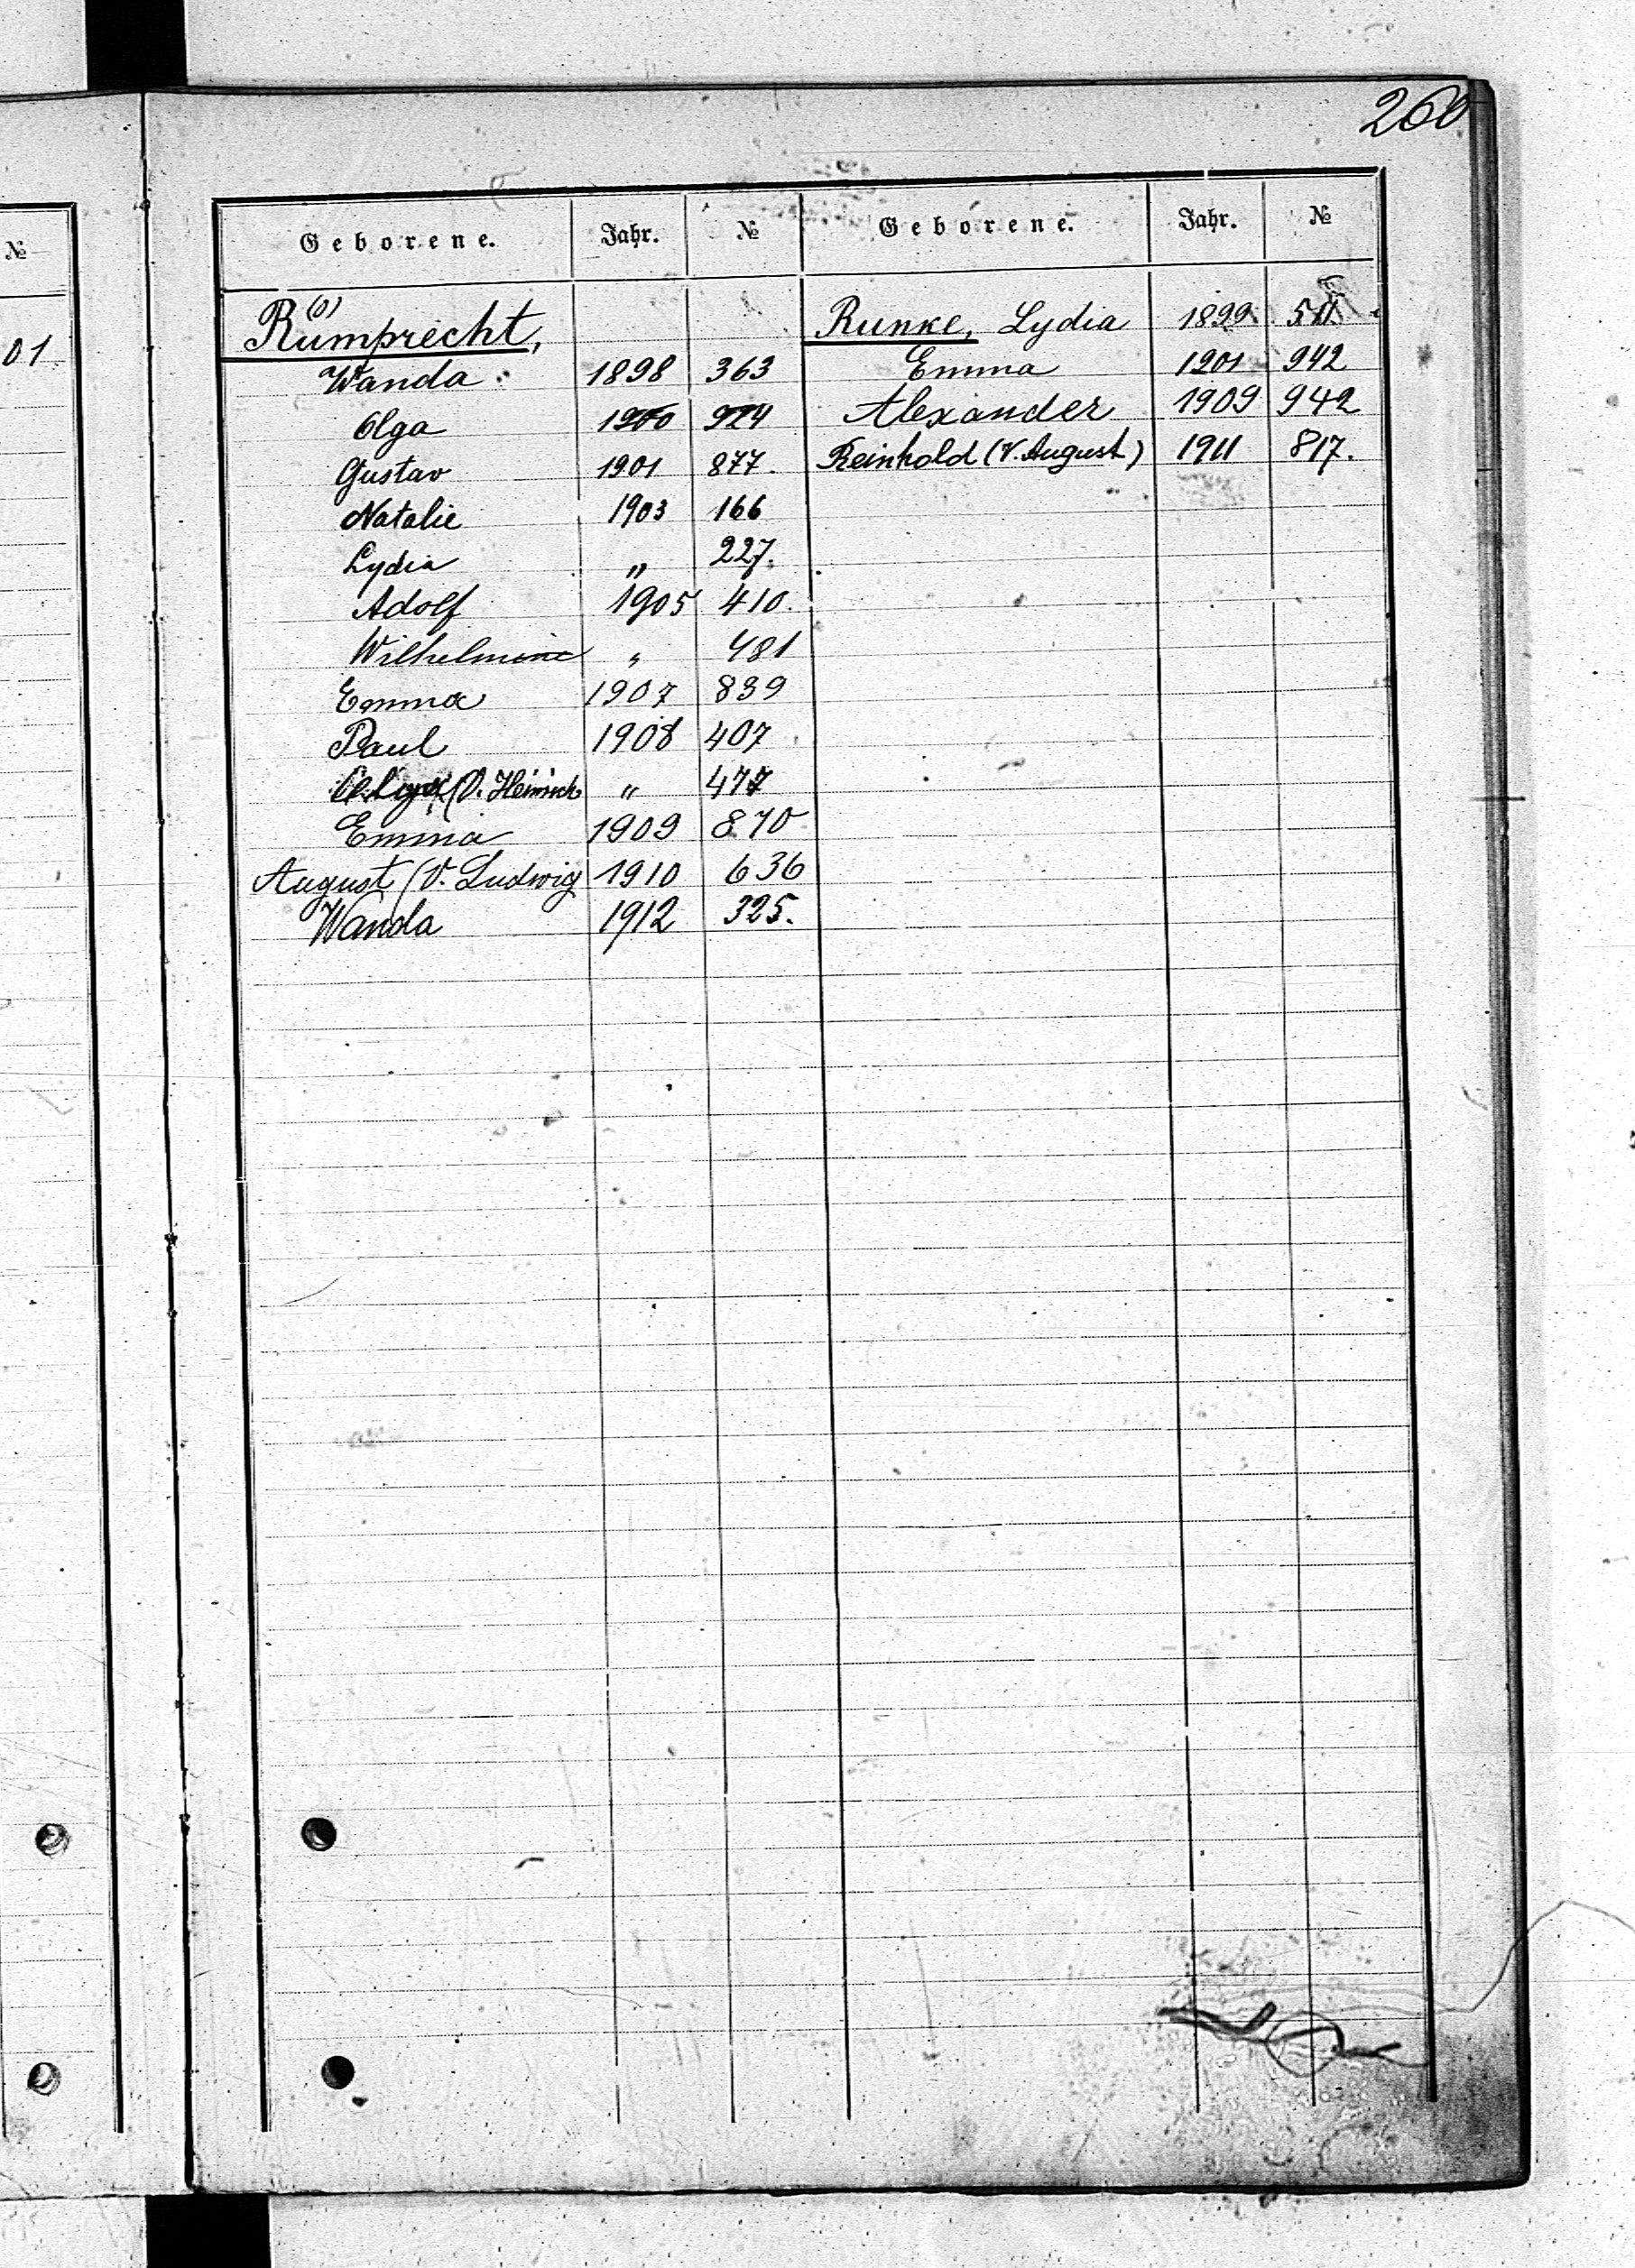 260
№
01
Geborene. Jahr. №
Rumprecht, (o)
Wanda 1898 363
Olga 1900 924
Gustav 1901 877.
Natalie 1903 166
Lydia „ 227.
Adolf 1905 410.
Wilhelmine „ 481
Emma 1907 839
Paul 1908 407
(V. Heinrich „ 477
Emma 1909 870
August (V. Ludwig 1910 636
Wanda 1912 325.
Geborene. Jahr. №
Runke, Lydia 1899
Emma 1901 942
Alexander 1909 942
Reinhold (V. August) 1911 817.